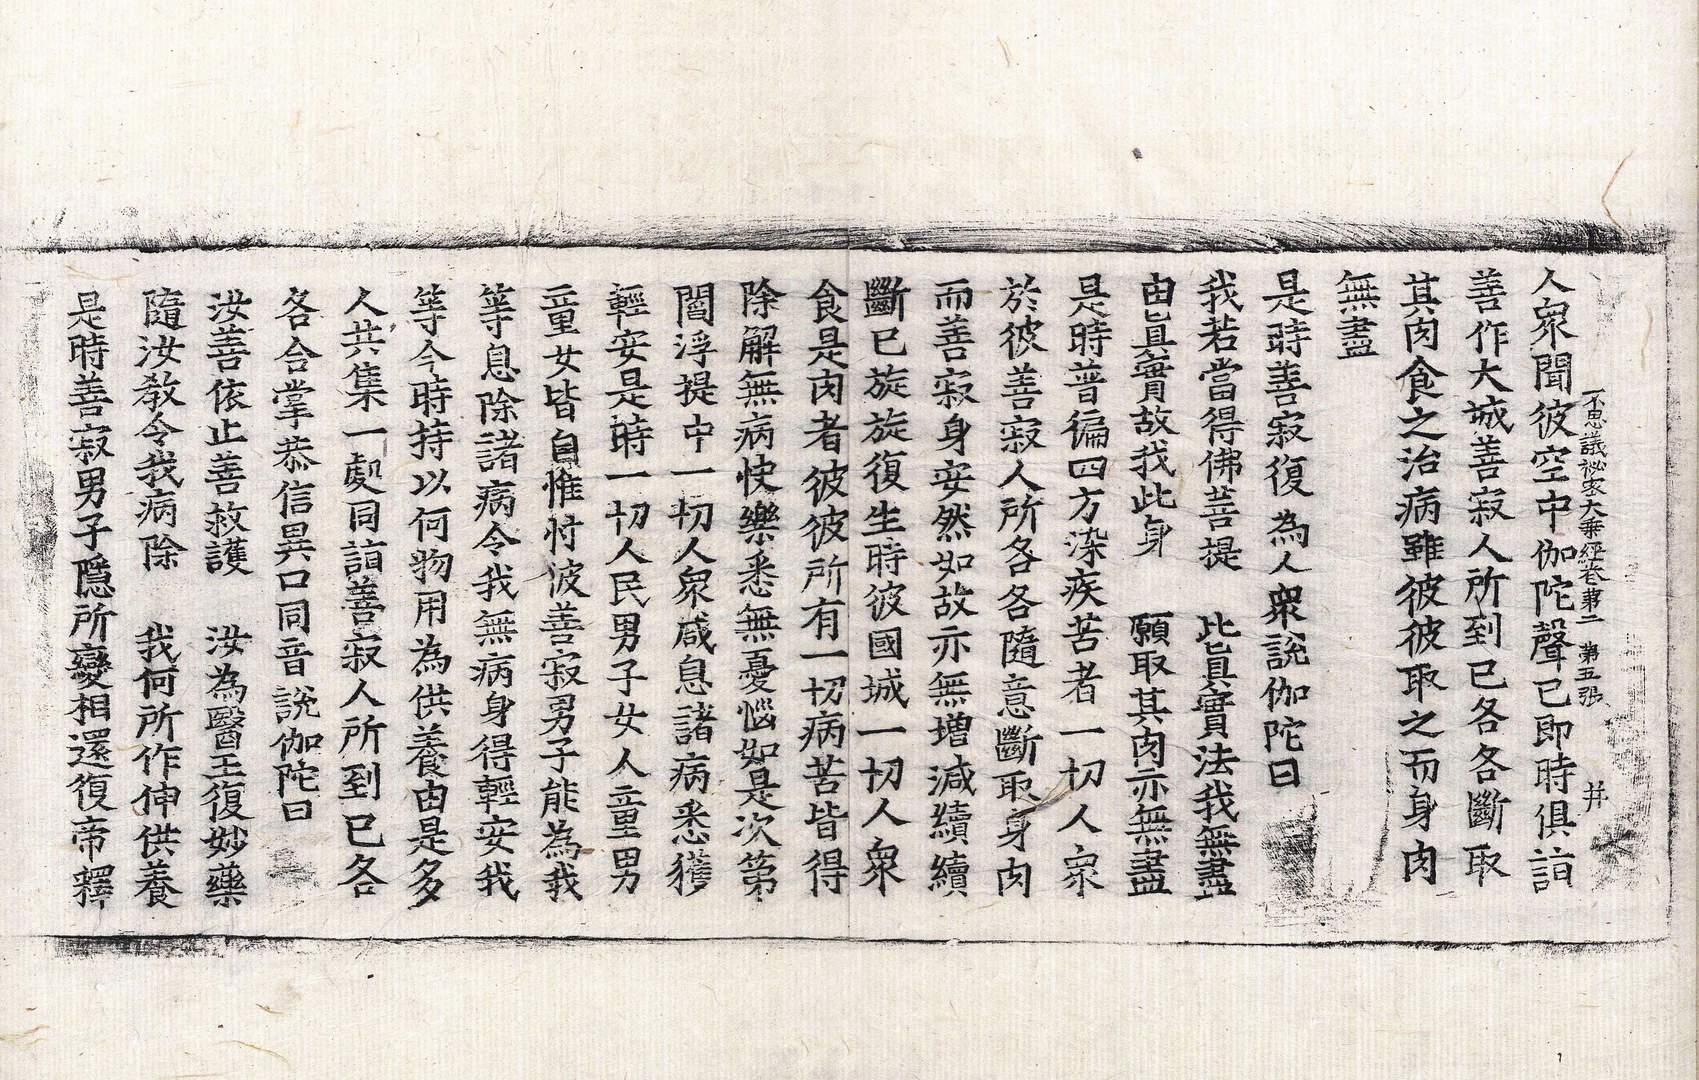 不思議祕密大乗經卷第二　第五張　井
人衆聞彼空中伽陀聲已即時俱詣
善作大城善寂人所到已各各斷取
其肉食之治病雖彼彼取之而身肉
無盡
是時善寂復為人衆說伽陀曰
我若當得佛菩提　此真實法我無盡
由真實故我此身　願取其肉亦無盡
是時普徧四方染疾苦者一切人衆
於彼善寂人所各各隨意斷取身肉
而善寂身安然如故亦無增減續續
斷已旋旋復生時彼國城一切人衆
食是肉者彼彼所有一切病苦皆得
除解無病快樂悉無憂惱如是次第
閻浮提中一切人衆咸息諸病悉獲
輕安是時一切人民男子女人童男
童女皆自惟忖彼善寂男子能為我
等息除諸病令我無病身得輕安我
等今時持以何物用為供養由是多
人共集一處同詣善寂人所到已各
各合掌恭信異口同音說伽陀曰
汝善依止善救護　汝為醫王復妙藥
隨汝教令我病除　我何所作伸供養
是時善寂男子隱所變相還復帝釋